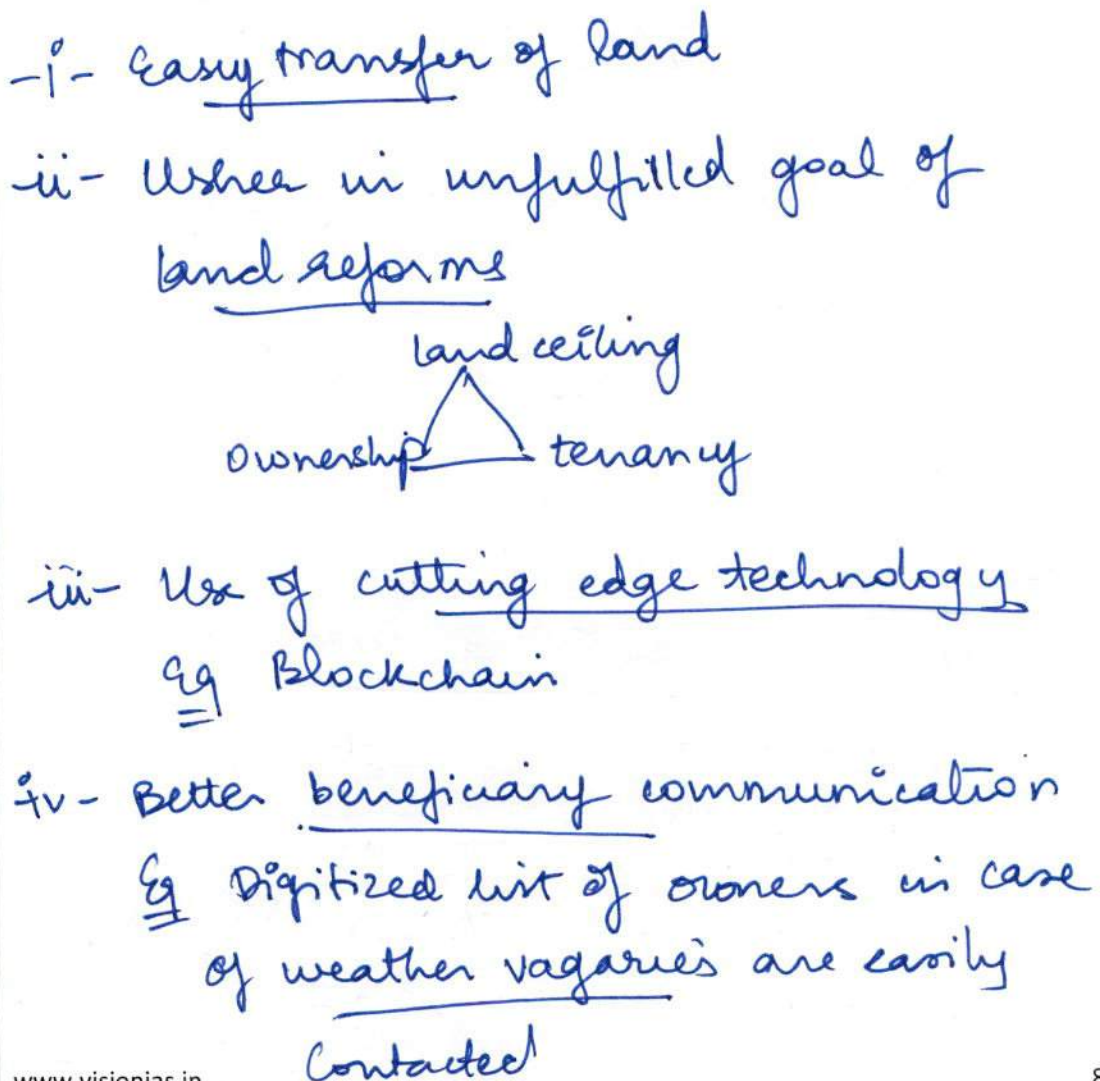 -i- Easy transfer of land
-ii- Usher in unfulfilled goal of
land reforms
land ceiling
ownership tenancy
-iii- Use of cutting edge technology
Eg Blockchain
iv- Better beneficiary communication
Eg Digitized list of owners in case
of weather vagaries are easily
contacted
www.visionias.in 8